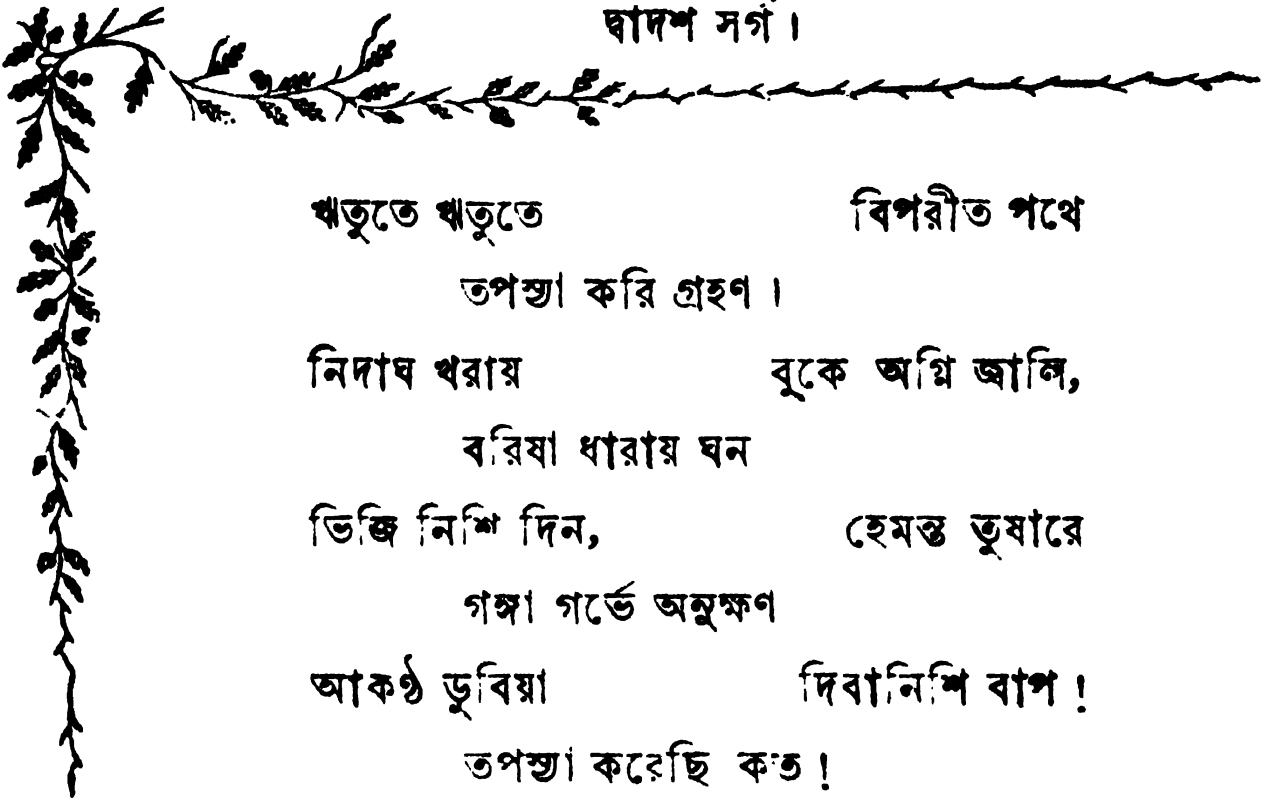 দ্বাদশ সর্গ।
ঋতুতে ঋতুতে বিপরীত পথে
তপস্যা করি গ্রহণ।
নিদাঘ খরায় বুকে অগ্নি জ্বালি,
বরিষা ধারায় ঘন
ভিজি নিশি দিন, হেমন্ত তুষারে
গঙ্গা গর্ভে অনুক্ষণ
আকণ্ঠ ডুবিয়া দিবানিশি বাপ!
তপস্যা করেছি কত!